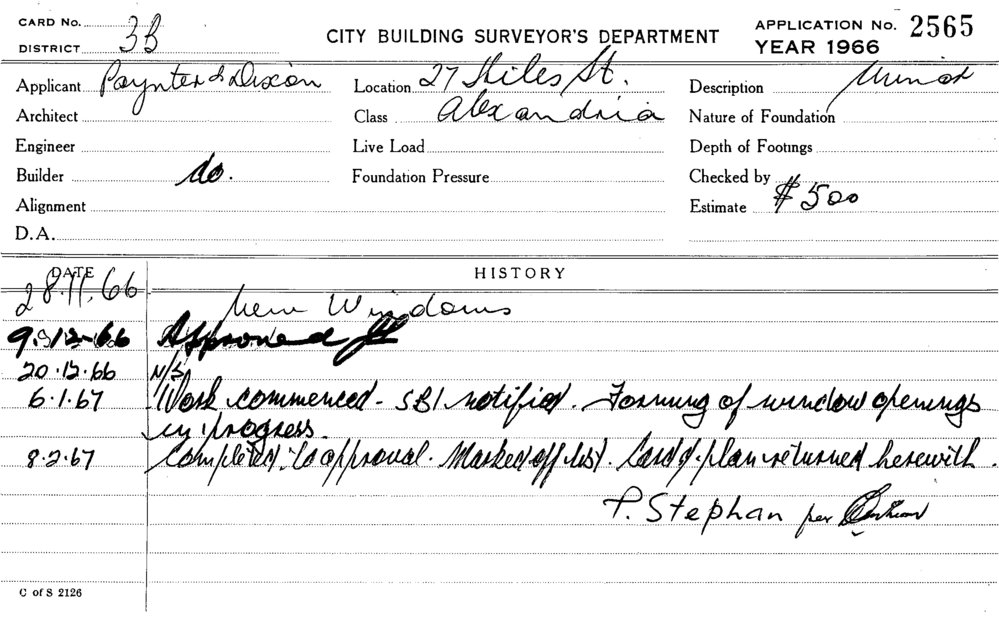 CARD No.
DISTRICT 3B
CITY BUILDING SURVEYOR'S DEPARTMENT
APPLICATION No. 2565
YEAR 1966
Applicant Paynter & Dixon
Location 27 Stiles St.
Description Minor
Architect
Class Alexandria
Nature of Foundation
Engineer
Live Load
Depth of Footings
Builder do.
Foundation Pressure
Checked by
Alignment
Estimate $500
D.A.
DATE
HISTORY
28.11.66 New Windows
9.12-66 Approved
20.12.66 N/S
6.1.67 Work commenced - SBI notified. Forming of window openings
in progress.
8.2.67 Completed to approval. Marked off list. Card & plan returned herewith.
P. Stephan per
C of S 2126